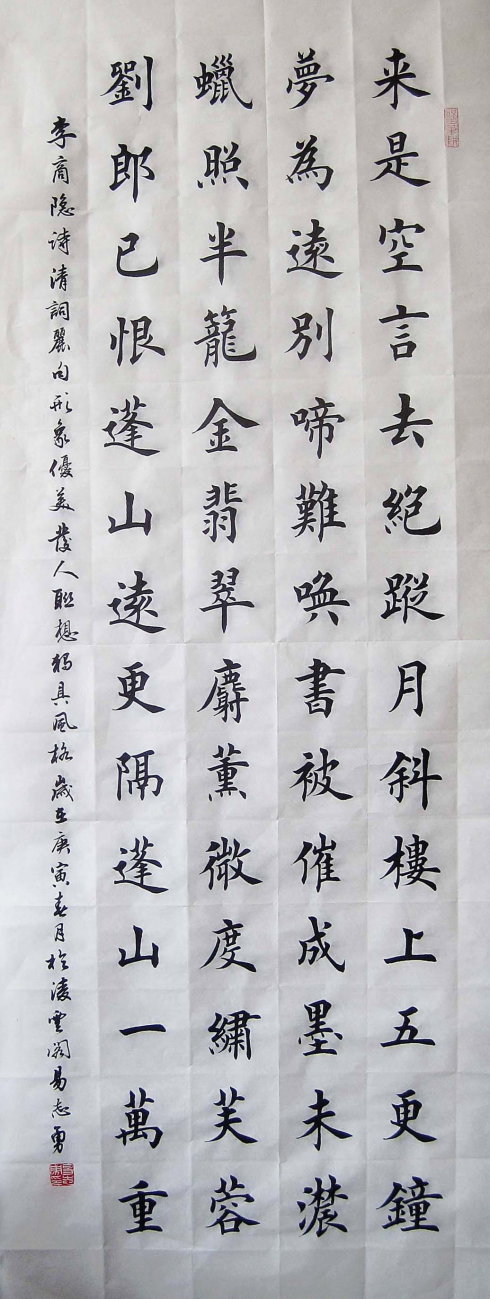 来是空言去絕蹤月斜樓上五更鐘
夢為遠別啼難喚書被催成墨未濃
蠟照半籠金翡翠麝薰微度繡芙蓉
劉郎已恨蓬山遠更隔蓬山一萬重
李商隐诗清詞麗句形象優美發人联想独具風格歲在庚寅春月於凌雲阁易志勇